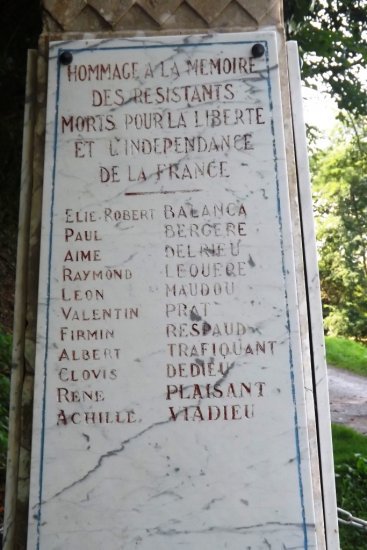 HOMMAGE A LA MEMOIRE
DES RESISTANTS
MORTS POUR LA LIBERTE
ET L'INDEPENDANCE
DE LA FRANCE
ELIE-ROBERT BALANCA
PAUL BERGERE
AIME DELRIEU
RAYMOND LEQUERE
LEON MAUDOU
VALENTIN PRAT
FIRMIN RESPAUD
ALBERT TRAFIQUANT
CLOVIS DEDIEU
RENE PLAISANT
ACHILLE VIADIEU